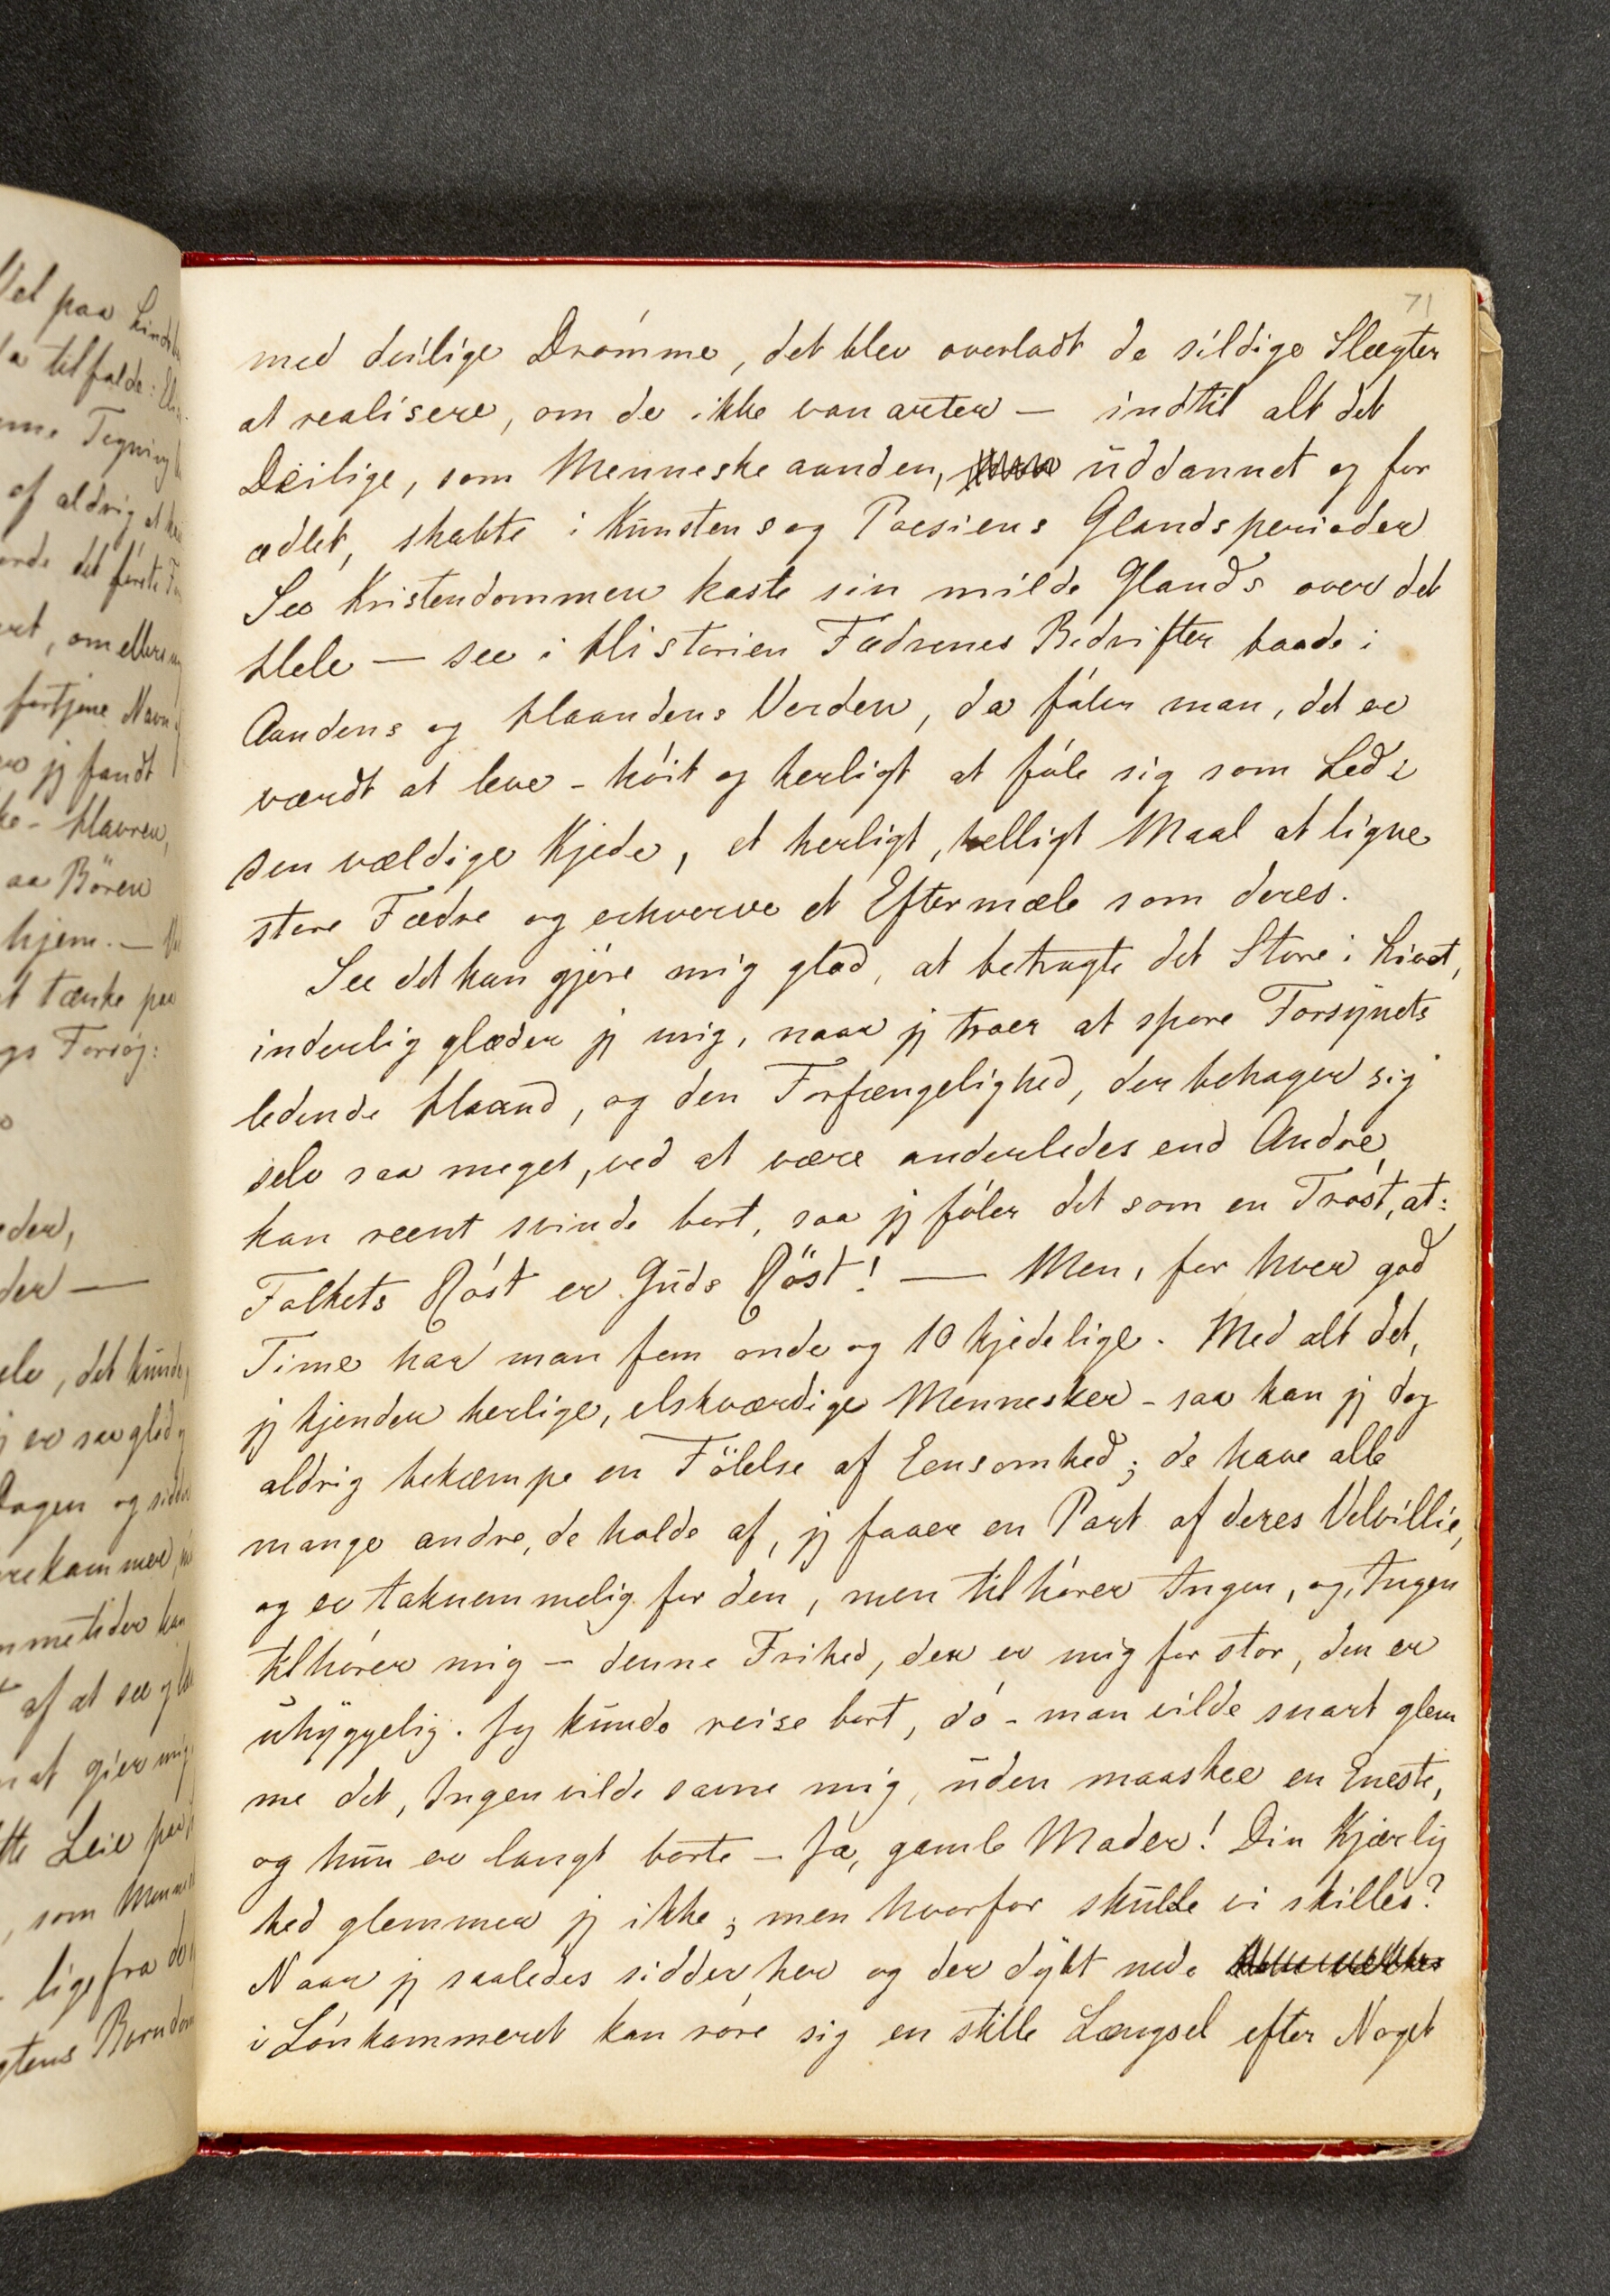 71
med deilige Drømme, det blev overladt de sildige Slægter
at realisere, om de ikke vanarter — indtil alt det
Deilige, som Menneskeaanden, uddannet og for
ædlet, skabte i Kunstens og Poesiens Glandsperioder
See Kristendommen kaste sin milde Glands over det
Hele — see i Historien Fædrenes Bedrifter baade i
Aandens og Haandens Verden, da føler man, det er
værdt at leve - høit og herligt at føle sig som Led i
den vældige Kjede, et herligt, helligt Maal at ligne
store Fædre og erhverve et Eftermæle som deres.
See det kan gjøre mig glad, at betragte det Store i Livet,
inderlig glæder jeg mig, naar jeg troer at spore Forsynets
ledende Haand, og den Forfængelighed, der behager sig
selv saa meget, ved at være anderledes end Andre
kan reent svinde bort, saa jeg føler det som en Trøst, at:
Folkets Røst er Guds Røst! — Men, for hver god
Time har man fem onde og 10 kjedelige. Med alt det,
jeg kjender herlige, elskværdige Mennesker - saa kan jeg dog
aldrig bekæmpe en Følelse af Eensomhed; de have alle
mange andre, de holde af, jeg faaer en Part af deres Velvillie,
og er taknemmelig for den, men tilhører Ingen, og Ingen
tilhører mig — denne Frihed, den er mig for stor, den er
uhyggelig. Jeg kunde reise bort, dø - man vilde snart glem
me det, Ingen vilde savne mig, uden maaskee en Eneste,
og hun er langt borte — Ja, gamle Moder! Din Kjærlig
hed glemmer jeg ikke; men hvorfor skulde vi skilles?
Naar jeg saaledes sidder her og der dybt nede
i Lønkammeret kan røre sig en stille Længsel efter Noget